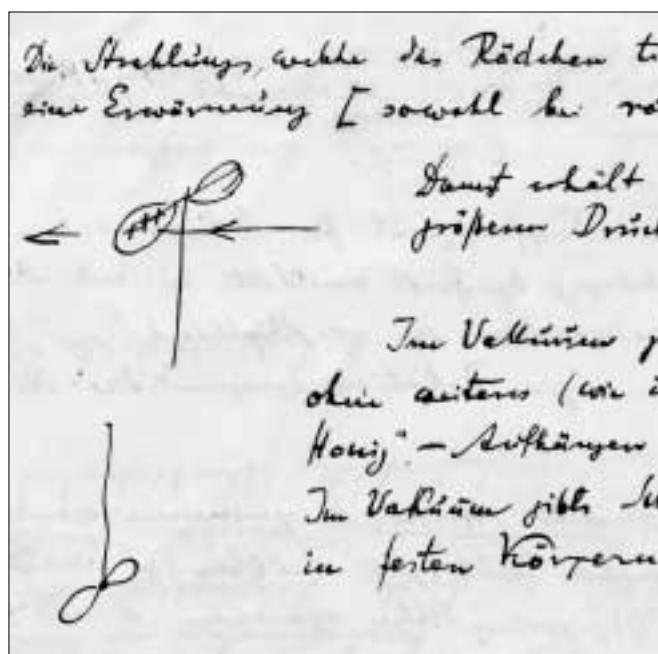 Die Strahlung, welche das Rädchen
eine Erwärmung [ sowohl bei
Damit erhält
größeren Druck
Im Vakuum
ohne weiteres (wie
Honig" – Aufhängen
Im Vakuum gibts
in festen Körpern